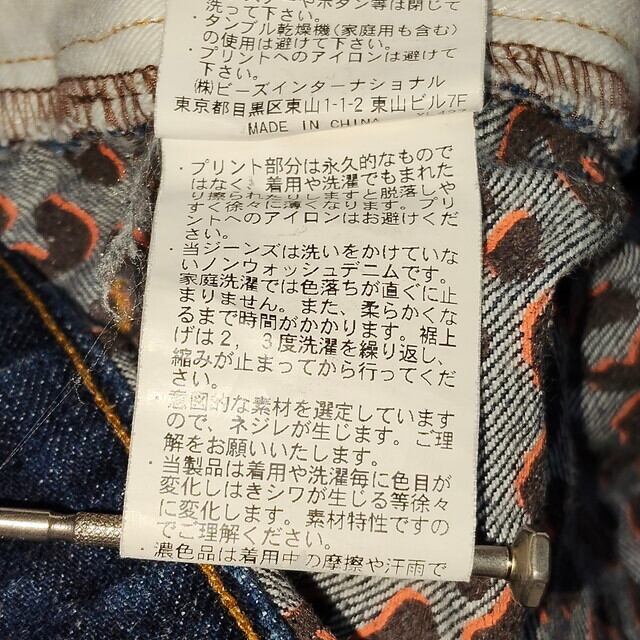 洗って下さい。
・タンブル乾燥機(家庭用も含む)
の使用は避けて下さい。
・プリントへのアイロンは避けて
下さい。
㈱ビーズインターナショナル
東京都目黒区東山1-1-2 東山ビル7F
MADE IN CHINA
・プリント部分は永久的なもので
はなく、着用や洗濯でもまれた
り擦れたりしますと脱落しや
すく徐々に薄くなります。プリ
ントへのアイロンはお避けくだ
さい。
・当ジーンズは洗いをかけていな
いノンウォッシュデニムです。
家庭洗濯では色落ちが直ぐに止
まりません。また、柔らかくな
るまで時間がかかります。裾上
げは2、3度洗濯を繰り返し、
縮みが止まってから行ってくだ
さい。
・意図的な素材を選定しています
ので、ネジレが生じます。ご理
解をお願いいたします。
・当製品は着用や洗濯毎に色目が
変化しはきシワが生じる等徐々
に変化します。素材特性ですの
でご理解ください。
・濃色品は着用中の摩擦や汗雨で